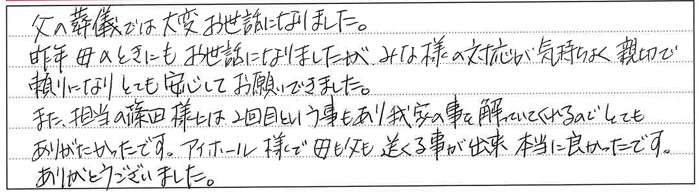 父の葬儀では大変お世話になりました。
昨年 母のときにもお世話になりましたが みな様の対応が気持ちよく 親切で
頼りになりとても安心してお願いできました。
また、担当の篠田様とは 2回目という事もあり我家の事を解っていてくれるのでとても
ありがたかったです。アイホール様で母も父も送くる事が出来 本当に良かったです。
ありがとうございました。